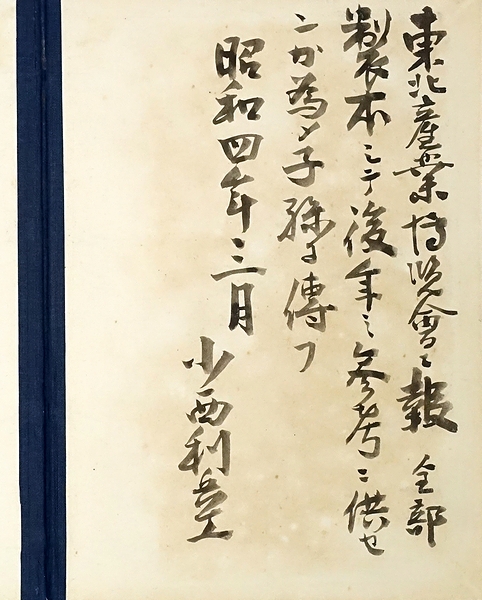 東北産業博覧會々報 全部
製本シテ後年之参考ニ供セ
ンガ為メ子孫ニ傳フ
昭和四年三月
小西利兵衛